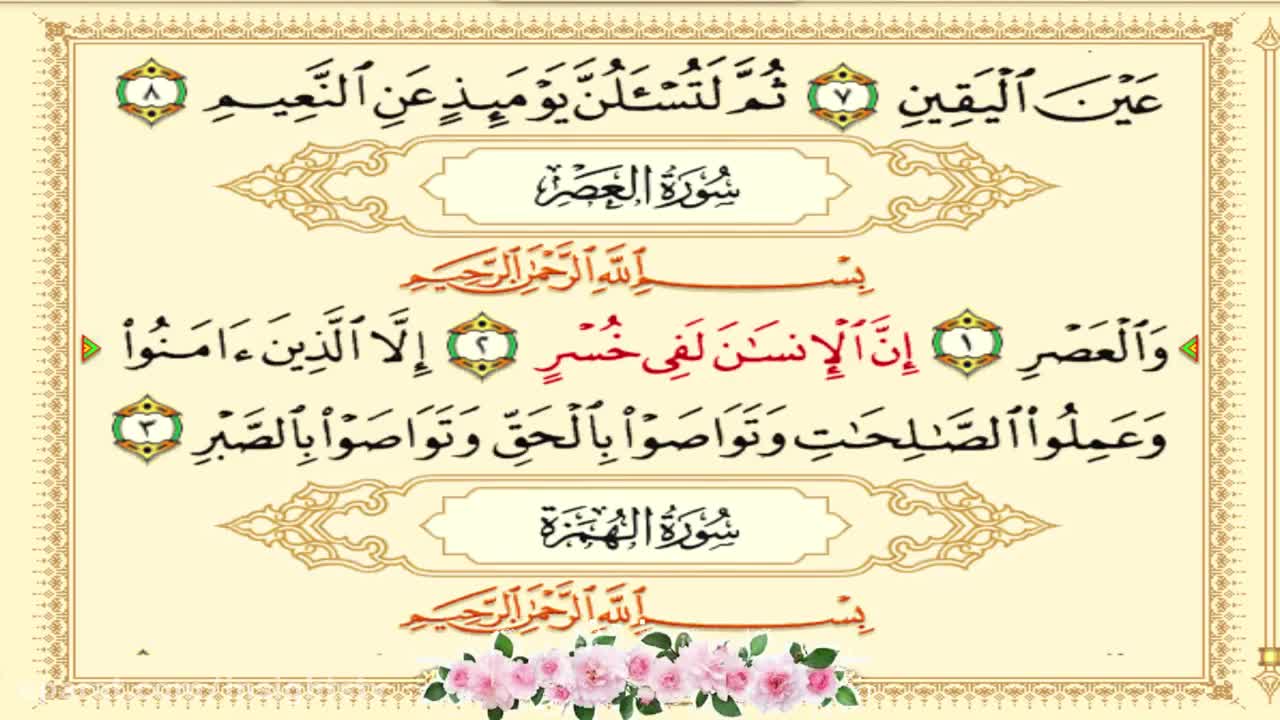 عَيْنَ ٱلْيَقِينِ ٧ ثُمَّ لَتُسْـَٔلُنَّ يَوْمَئِذٍ عَنِ ٱلنَّعِيمِ ٨
سُورَةُ العَصْرِ
بِسْمِ ٱللَّهِ ٱلرَّحْمَٰنِ ٱلرَّحِيمِ
وَٱلْعَصْرِ ١ إِنَّ ٱلْإِنسَٰنَ لَفِى خُسْرٍ ٢ إِلَّا ٱلَّذِينَ ءَامَنُوا۟
وَعَمِلُوا۟ ٱلصَّٰلِحَٰتِ وَتَوَاصَوْا۟ بِٱلْحَقِّ وَتَوَاصَوْا۟ بِٱلصَّبْرِ ٣
سُورَةُ الهُمَزَةِ
بِسْمِ ٱللَّهِ ٱلرَّحْمَٰنِ ٱلرَّحِيمِ